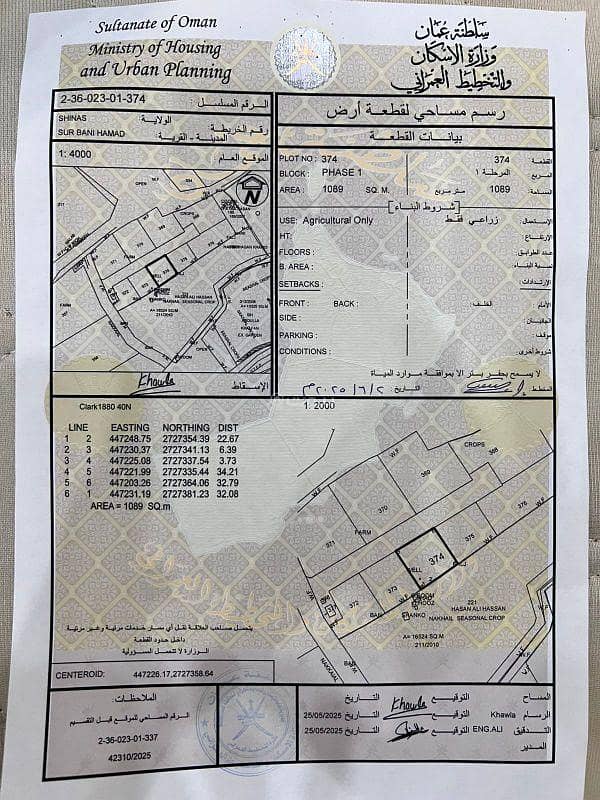 Sultanate of Oman
Ministry of Housing
and Urban Planning
سلطنة عمان
وزارة الإسكان
والتخطيط العمراني
2-36-023-01-374 الرقم المسلسل :
SHINAS الولاية
رقم الخريطة
SUR BANI HAMAD المدينة - القرية :
1: 4000 الموقع العام
رسم مساحي لقطعة أرض
بيانات القطعة
PLOT NO : 374 374 القطعة:
BLOCK : PHASE 1 المرحلة 1 المربع
AREA : 1089 SQ. M. متر مربع 1089 المساحة:
[شروط البناء]
USE: Agricultural Only زراعي فقط الاستعمال:
HT: الارتفاع:
FLOORS : عدد الطوابق:
B. AREA : نسبة البناء:
SETBACKS : الارتدادات:
FRONT : BACK : الخلف: الأمام:
SIDE : الجانبان:
PARKING : موقف:
CONDITIONS : شروط أخرى:
لا يسمح بحفر بئر الا بموافقة موارد المياة
Khawla الإسقاط
التاريخ : ٢٠٢٥/٦/٢م المخطط
Clark1880 40N
1: 2000
LINE EASTING NORTHING DIST
1 2 447248.75 2727354.39 22.67
2 3 447230.37 2727341.13 6.39
3 4 447225.08 2727337.54 3.73
4 5 447221.99 2727335.44 34.21
5 6 447203.26 2727364.06 32.79
6 1 447231.19 2727381.23 32.08
AREA = 1089 SQ.m
CROPS
368
369
370
371
FARM
376
375
374
WELL
373
372
ROOM
221
HASAN ALI HASSAN
NAKHAIL SEASONAL CROP
A= 16524 SQ.M
211/2010
يتحمل صاحب العلاقة نقل أي مسار خدمات مرئية وغير مرئية
داخل حدود القطعة
الوزارة لا تتحمل المسؤولية
CENTEROID: 447226.17,2727358.64
الملاحظات
الرقم المساحي للموقع قبل التقسيم
2-36-023-01-337
42310/2025
المساح التوقيع Khawla التاريخ
الرسام Khawla التوقيع التاريخ 25/05/2025
التدقيق ENG.ALI التوقيع التاريخ 25/05/2025
المدير